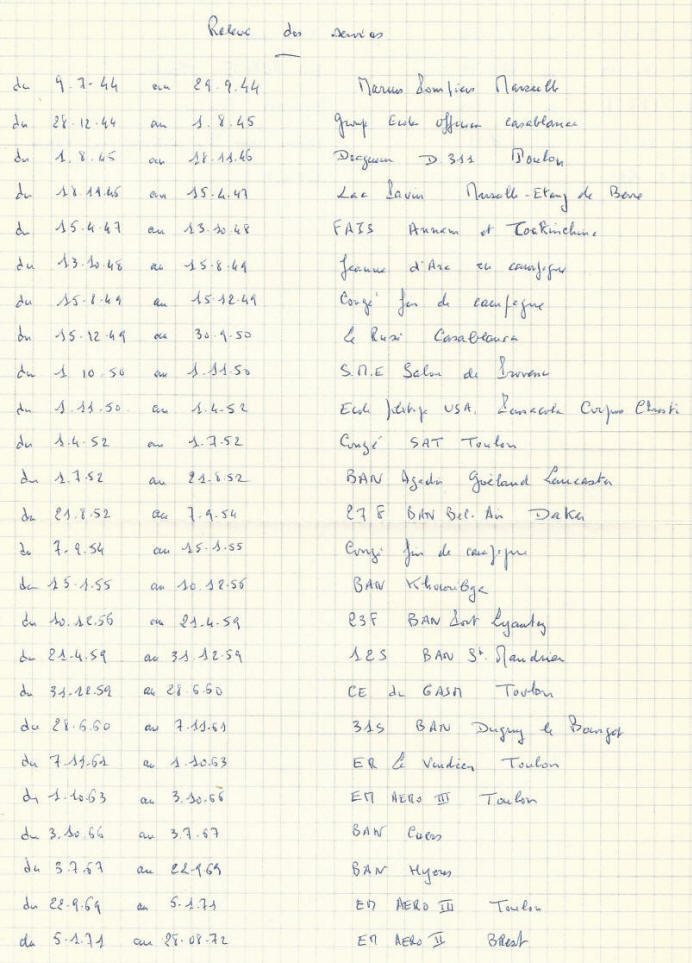 Relevé des services
du 9.7.44 au 29.9.44 Marins Pompiers Marseille
du 28.12.44 au 1.8.45 Group Ecole officiers casablanca
du 1.8.45 au 18.11.46 Dragueur D 311 Toulon
du 18.11.46 au 15.4.47 Lac Marseille-Etang de Berre
du 15.4.47 au 13.10.48 FAIS Annam et
du 13.10.48 au 15.8.49 Jeanne d'Arc en campagne
du 15.8.49 au 15.12.49 Congé fin de campagne
du 15.12.49 au 30.9.50 le Casablanca
du 1 10.50 au 1.11.50 S.M.E Salon de Provence
du 1.11.50 au 1.4.52 Ecole pilotage USA. Pensacola Corpus Christi
du 1.4.52 au 1.7.52 Congé SAT Toulon
du 1.7.52 au 21.8.52 BAN Agadir Goéland Lancaster
du 21.8.52 au 7.9.54 27 F BAN Bel. Air Dakar
du 7.9.54 au 15.1.55 Congé fin de campagne
du 15.1.55 au 10.12.56 BAN Khouribga
du 10.12.56 au 21.4.59 23F BAN Port Lyautey
du 21.4.59 au 31.12.59 12S BAN St. Mandrier
du 31.12.59 au 28.6.60 CE du GASM Toulon
du 28.6.60 au 7.11.61 31S BAN Dugny le Bourget
du 7.11.61 au 1.10.63 ER le Vendéen Toulon
du 1.10.63 au 3.10.66 EM AERO III Toulon
du 3.10.66 au 3.7.67 BAN Cuers
du 3.7.67 au 22.9.69 BAN Hyères
du 22.9.69 au 5.1.71 EM AERO III Toulon
du 5.1.71 au 28.08.72 EM AERO II Brest